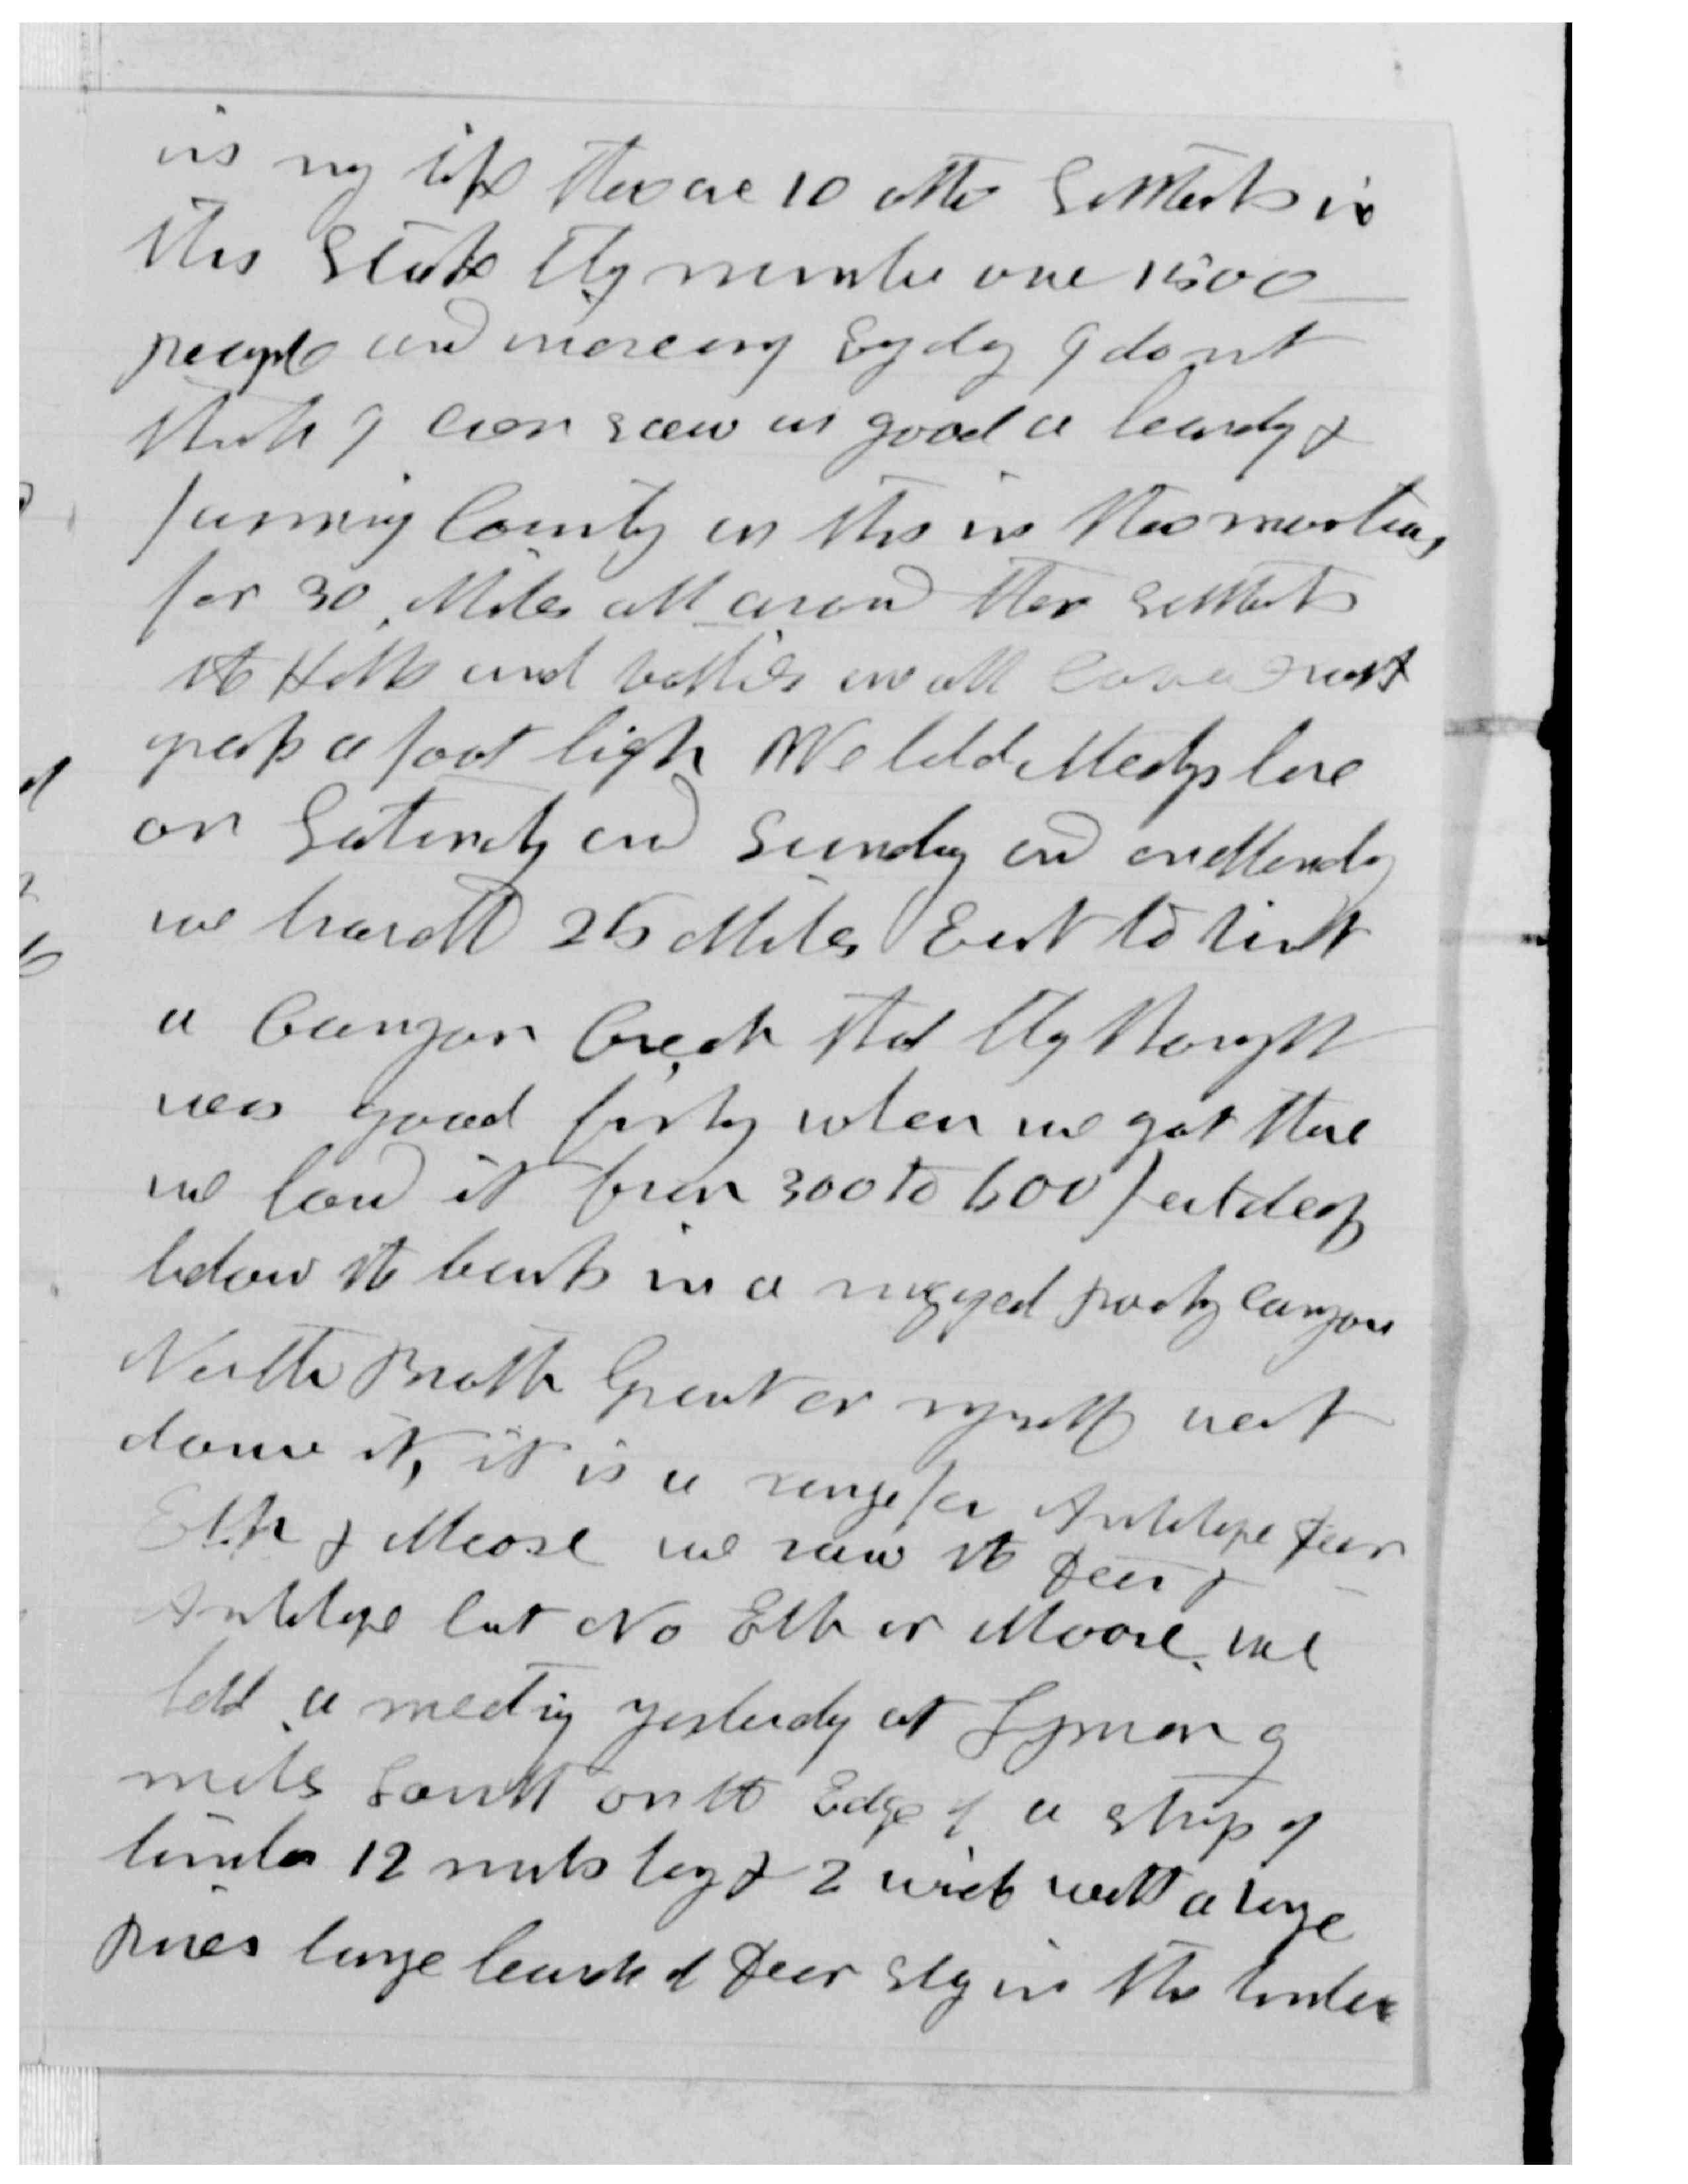 in my life there are 10 other Settlements in
this State they number over 1500
people and increasing Evry day I do not
think I ever saw as good a hardy &
farming County as this is the mountains
for 30 Miles all around the settlements
the Hills and vallies are all covered with
grass a foot high We held Meetings here
on Saturday and Sunday and on Monday
we travelld 25 Miles East to visit
a Canyon Creek that they thought
was good fishing when we got there
we found it from 300 to 600 feet deep
below the banks in a rugged rocky canyon
Neither Brother Grant or myself went
down it, it is a range for Antelope Deer
Elk & Moose we saw the Deer &
Antelope but No Elk or Moose. we
held a meeting yesterday at Lyman 9
miles South on the Edge of a strip of
timber 12 miles long & 2 wide with a large
pines large beards of Deer stay in the timber